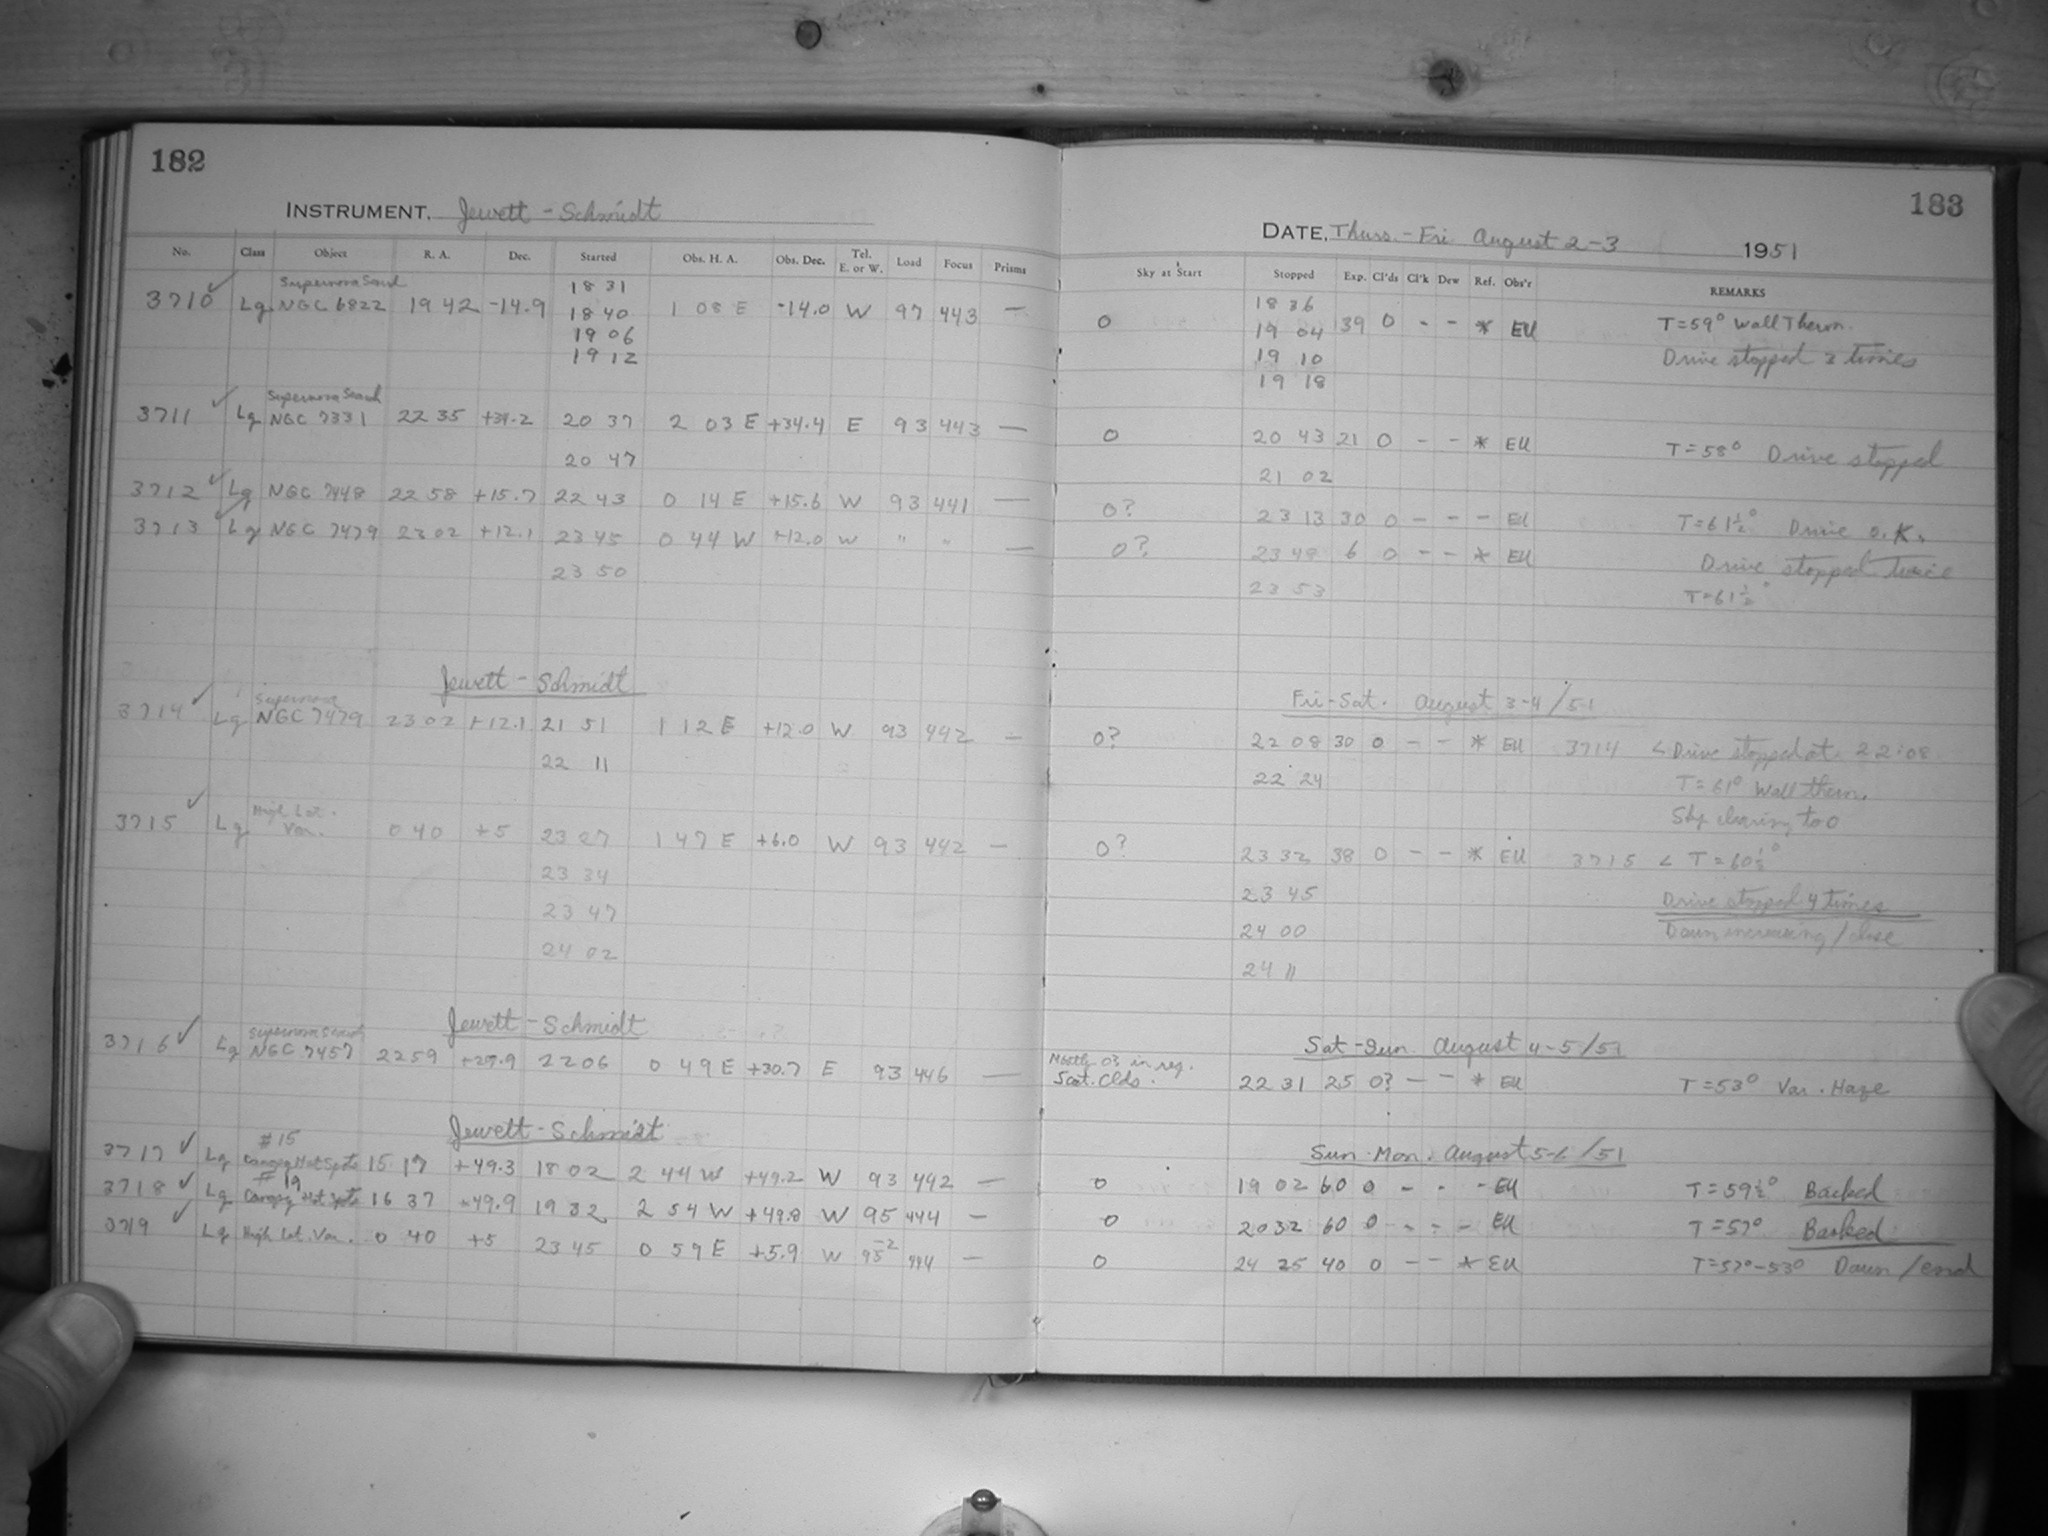 182
INSTRUMENT. Jewett-Schmidt
No. Class Object R. A. Dec. Started Obs. H. A. Obs. Dec. Tel. E. or W. Load Focus Prisms
Supernova Search 18 31
3710 ✓ Lg NGC 6822 19 42 -14.9 18 40 1 08 E -14.0 W 97 443 —
19 06
19 12
Supernova Search
3711 ✓ Lg NGC 7331 22 35 +34.2 20 37 2 03 E +34.4 E 93 443 —
20 47
3712 ✓ Lg NGC 7448 22 58 +15.7 22 43 0 14 E +15.6 W 93 441 —
3713 ✓ Lg NGC 7479 23 02 +12.1 23 45 0 44 W +12.0 W " " —
23 50
Jewett-Schmidt
Supernova
3714 ✓ Lg NGC 7479 23 02 +12.1 21 51 1 12 E +12.0 W 93 442 —
22 11
High Lat.
3715 ✓ Lg Var. 0 40 +5 23 27 1 47 E +6.0 W 93 442 —
23 34
23 47
24 02
Jewett-Schmidt
Supernova Search
3716 ✓ Lg NGC 7457 22 59 +29.9 22 06 0 49 E +30.7 E 93 446 —
Jewett-Schmidt
#15
3717 ✓ Lg Canopy Hot Spots 15 17 +49.3 18 02 2 44 W +49.2 W 93 442 —
#19
3718 ✓ Lg Canopy Hot Spots 16 37 +49.9 19 32 2 54 W +49.8 W 95 444 —
3719 ✓ Lg High Lat. Var. 0 40 +5 23 45 0 59 E +5.9 W 95-2 444 —
183
DATE, Thurs.-Fri August 2-3 1951
Sky at Start Stopped Exp. Cl'ds Cl'k Dew Ref. Obs'r REMARKS
18 36
0 19 04 39 0 - - * EU T=59° Wall Therm.
19 10 Drive stopped 3 times
19 18
0 20 43 21 0 - - * EU T=58° Drive stopped
21 02
0? 23 13 30 0 - - - EU T=61½° Drive O.K.
0? 23 48 6 0 - - * EU Drive stopped twice
23 53 T=61½°
Fri-Sat. August 3-4/51
0? 22 08 30 0 - - * EU 3714 < Drive stopped at 22:08
22 24 T=61° Wall therm.
Sky clearing to 0
0? 23 32 38 0 - - * EU 3715 < T=60½°
23 45 Drive stopped 4 times
24 00 Dawn increasing/close
24 11
Sat-Sun August 4-5/51
Mostly 03 in reg.
Scat. Clds. 22 31 25 0? - - * EU T=53° Var. Haze
Sun-Mon. August 5-6/51
0 19 02 60 0 - - - EU T=59½° Backed
0 20 32 60 0 - - - EU T=57° Backed
0 24 25 40 0 - - * EU T=57°-53° Dawn/end